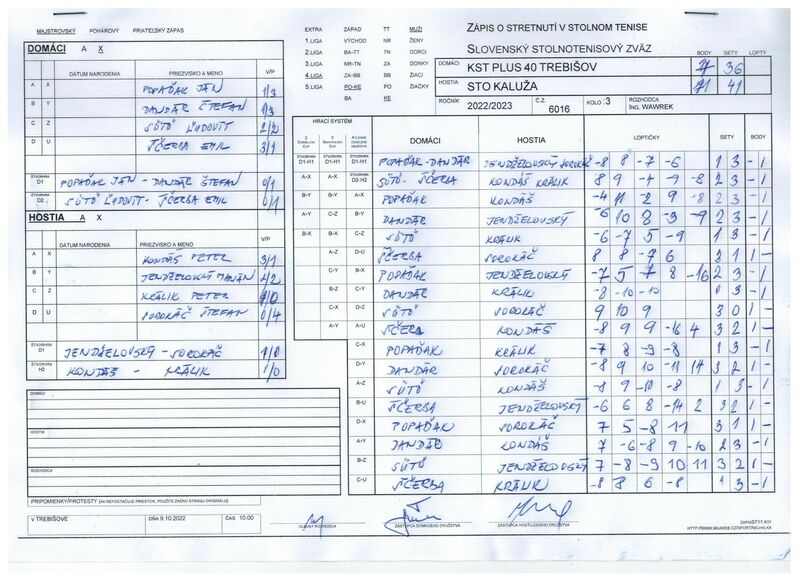 MAJSTROVSKÝ POHÁROVÝ PRIATEĽSKÝ ZÁPAS
DOMÁCI A X
DÁTUM NARODENIA PRIEZVISKO A MENO V/P
A X POPAĎAK JÁN 1/3
B Y DANDÁR ŠTEFAN 1/3
C Z SÜTÖ ĽUDOVÍT 2/2
D U ŠČERBA EMIL 3/1
ŠTVORHRA D1 POPAĎAK JÁN - DANDÁR ŠTEFAN 0/1
ŠTVORHRA D2 SÜTÖ ĽUDOVÍT - ŠČERBA EMIL 0/1
HOSTIA A X
DÁTUM NARODENIA PRIEZVISKO A MENO V/P
A X KONDÁŠ PETER 3/1
B Y JENDŽELOVSKÝ MARIÁN 2/2
C Z KRÁLIK PETER 4/0
D U SOROKÁČ ŠTEFAN 0/4
ŠTVORHRA D1 JENDŽELOVSKÝ - SOROKÁČ 1/0
ŠTVORHRA H2 KONDÁŠ - KRÁLIK 1/0
DOMÁCI
HOSTIA
ROZHODCA
PRIPOMIENKY/PROTESTY (AK NEPOSTAČUJE PRIESTOR, POUŽITE ZADNÚ STRANU ORIGINÁLU)
V TREBIŠOVE DŇA 9.10.2022 ČAS 10.00
EXTRA ZÁPAD TT MUŽI
1.LIGA VÝCHOD NR ŽENY
2.LIGA BA-TT TN DORCI
3.LIGA NR-TN ZA DORKY
4.LIGA ZA-BB BB ŽIACI
5.LIGA PO-KE PO ŽIAČKY
BA KE
ZÁPIS O STRETNUTÍ V STOLNOM TENISE
SLOVENSKÝ STOLNOTENISOVÝ ZVÄZ
BODY SETY LOPTY
DOMÁCI KST PLUS 40 TREBIŠOV 7 36
HOSTIA STO KALUŽA 11 41
ROČNÍK 2022/2023 Č.Z. 6016 KOLO : 3 ROZHODCA Ing. WAWREK
HRACÍ SYSTÉM
DOMÁCI HOSTIA LOPTIČKY SETY BODY
ŠTVORHRA D1-H1 ŠTVORHRA D1-H1 ŠTVORHRA D1-H1 POPAĎAK-DANDÁR JENDŽELOVSKÝ SOROKÁČ -8 8 -7 -6 1 3 - 1
A-X A-X ŠTVORHRA D2-H2 SÜTÖ - ŠČERBA KONDÁŠ KRÁLIK 8 9 -4 -9 -8 2 3 - 1
B-Y B-Y A-X POPAĎAK KONDÁŠ -4 11 2 9 -8 2 3 - 1
A-Y C-Z B-Y DANDÁR JENDŽELOVSKÝ -6 10 8 -3 -9 2 3 - 1
B-X B-X C-Z SÜTÖ KRÁLIK -6 -7 5 -9 1 3 - 1
A-Z D-U ŠČERBA SOROKÁČ 8 8 -7 6
C-Y B-X POPAĎAK JENDŽELOVSKÝ -7 5 7 8 -16
B-Z C-Y DANDÁR KRÁLIK -8 -10 -10 1 3 - 1
C-X D-Z SÜTÖ SOROKÁČ 9 10 9 3 0 1 -
A-Y A-U ŠČERBA KONDÁŠ -8 9 9 -16 4 3 2 1 -
C-X POPAĎAK KRÁLIK -7 8 -9 -8 1 3 - 1
D-Y DANDÁR SOROKÁČ -8 9 10 -11 14 3 2 1 -
A-Z SÜTÖ KONDÁŠ -8 9 -10 -8 1 3 - 1
B-U ŠČERBA JENDŽELOVSKÝ -6 6 8 -14 2 3 2 1 -
D-X POPAĎAK SOROKÁČ 7 5 -8 11 3 1 1 -
A-Y DANDÁR KONDÁŠ 7 -6 -8 9 -10 2 3 - 1
B-Z SÜTÖ JENDŽELOVSKÝ 7 -8 -9 10 11 3 2 1 -
C-U ŠČERBA KRÁLIK -8 8 6 -8 1 3 - 1
HLAVNÝ ROZHODCA ZÁSTUPCA DOMÁCEHO DRUŽSTVA ZÁSTUPCA HOSŤUJÚCEHO DRUŽSTVA